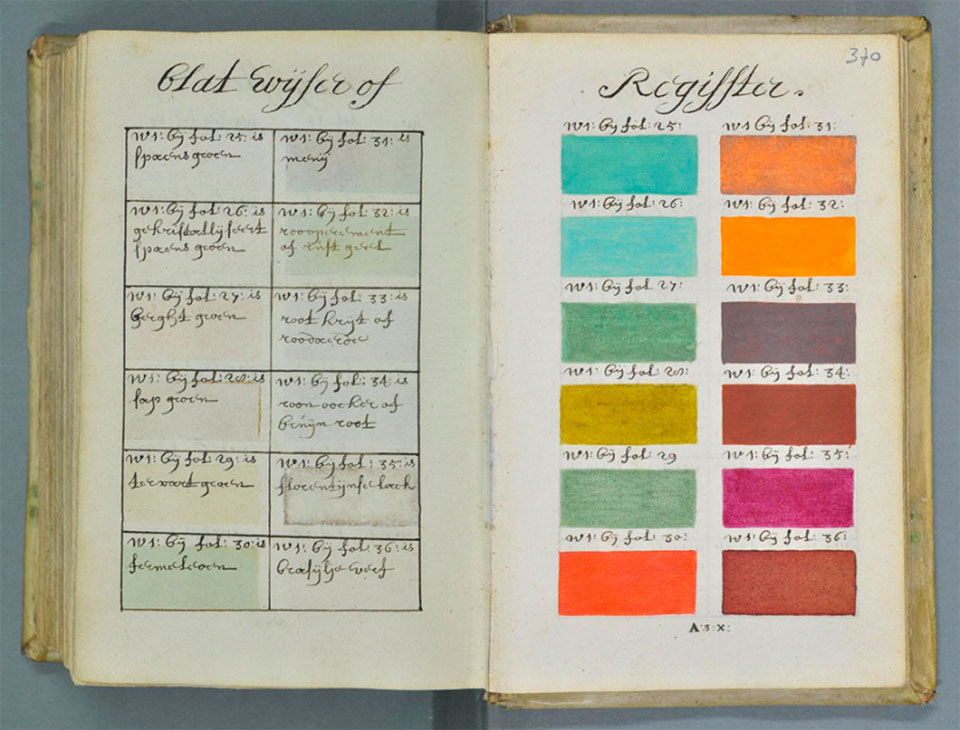 blat wijser of
N1: bij fol: 25: is
spaens groen
N1: bij fol: 31: is
menij
N1: bij fol: 26: is
gekristallijseert
spaens groen
N1: bij fol: 32: is
roooperement
of rust geel
N1: bij fol: 27: is
berght groen
N1: bij fol: 33: is
root krijt of
roodaerde
N1: bij fol: 28: is
sap groen
N1: bij fol: 34: is
roon oocker of
bruijn root
N1: bij fol: 29: is
terwart groen
N1: bij fol: 35: is
florentijnse lack
N1: bij fol: 30: is
fermeleoen
N1: bij fol: 36: is
brasijlje verf
370
Regisster.
N1: bij fol: 25:
N1: bij fol: 31:
N1: bij fol: 26:
N1: bij fol: 32:
N1: bij fol: 27:
N1: bij fol: 33:
N1: bij fol: 28:
N1: bij fol: 34:
N1: bij fol: 29
N1: bij fol: 35:
N1: bij fol: 30:
N1: bij fol: 36:
A:3:x: